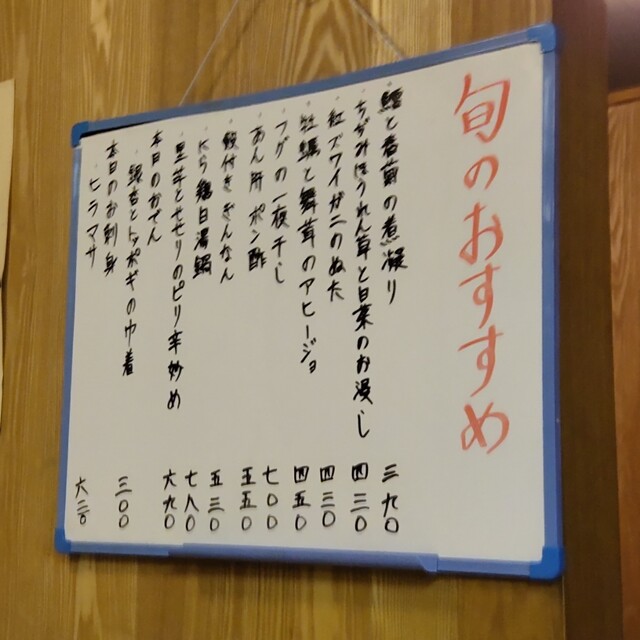 旬のおすすめ
・鱈と春菊の煮凝り 三九〇
・ちぢみほうれん草と白菜のお浸し 四三〇
・紅ズワイガニのぬた 四三〇
・牡蠣と舞茸のアヒージョ 四五〇
・フグの一夜干し 七〇〇
・あん肝ポン酢 五五〇
・殻付きぎんなん 五三〇
・にら鶏白湯鍋 七八〇
・里芋とセセリのピリ辛炒め 六九〇
本日のおでん
・銀杏とトッポギの巾着 三〇〇
本日のお刺身
・ヒラマサ 六三〇